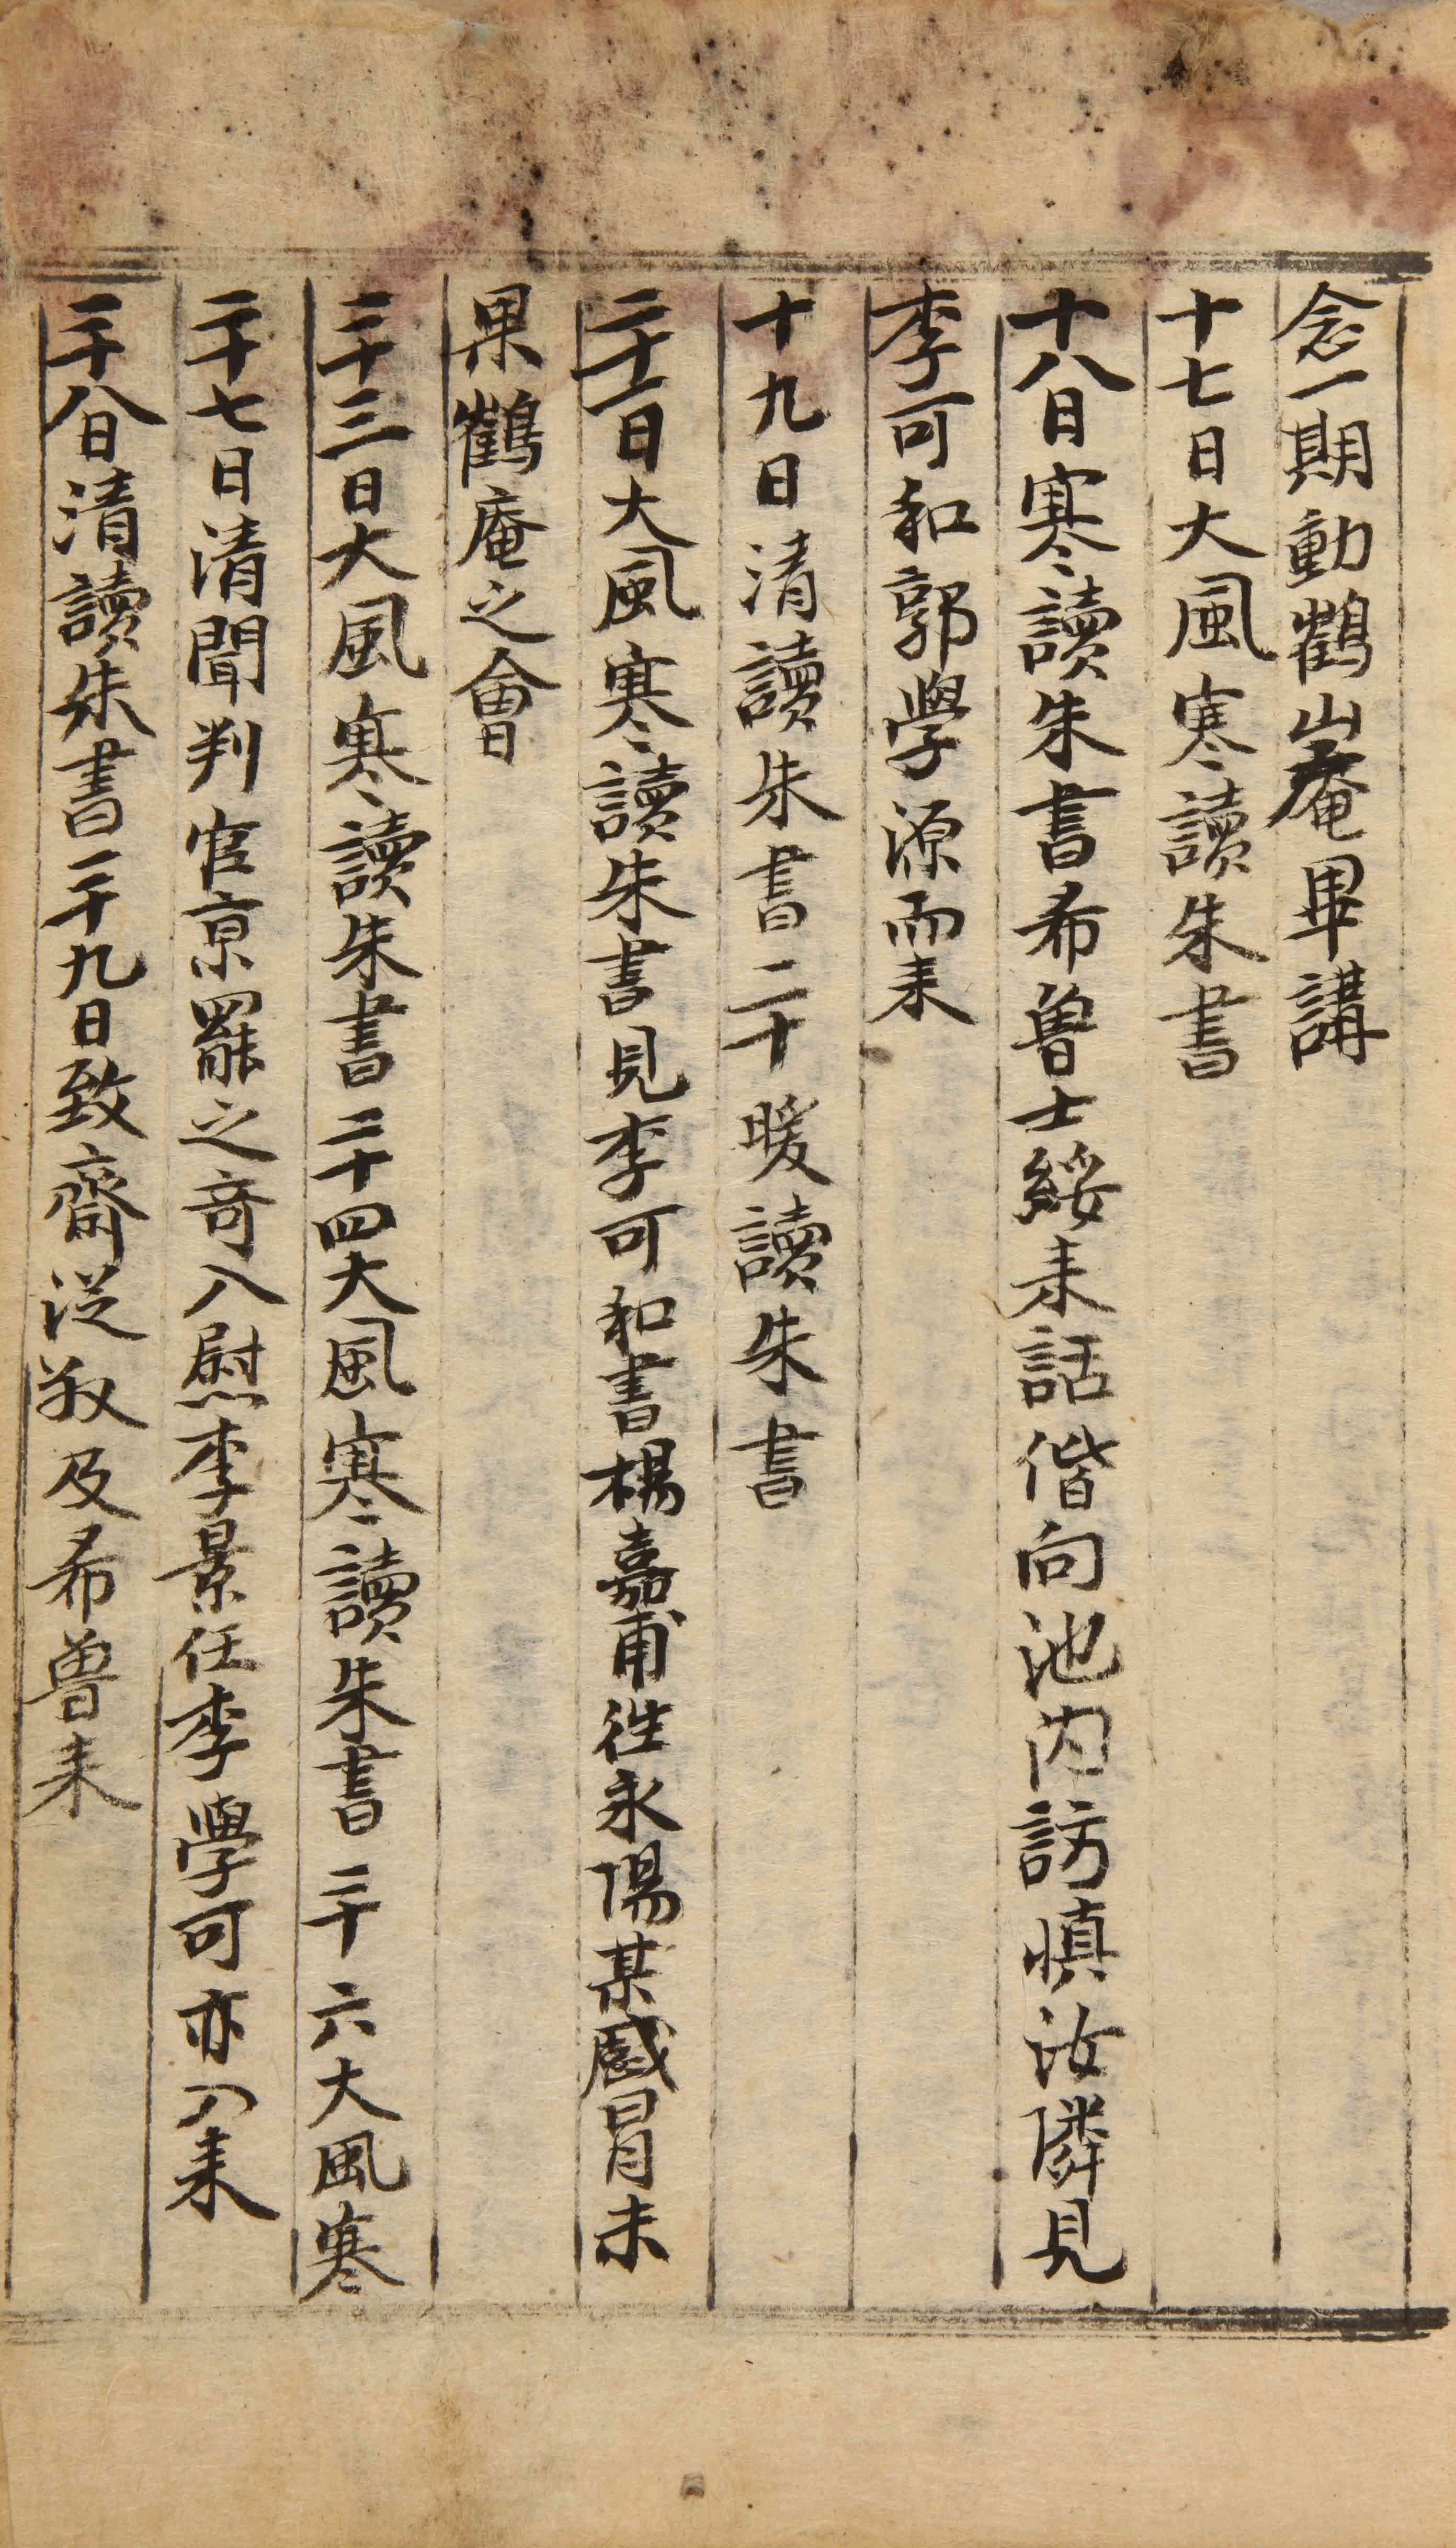 念一期動鶴山庵畢講
十七日大風寒讀朱書
十八日寒讀朱書希魯士綏来話偕向池內訪愼汝隣見
李可和郭學源而来
十九日淸讀朱書二十暖讀朱書
二十一日大風寒讀朱書見李可和書楊嘉甫徃永陽某慼冒未
果鶴庵之會
二十三日大風寒讀朱書二十四大風寒讀朱書二十六大風寒
二十七日清聞判官京罷之竒入慰李景任李學可亦入来
二十八日清讀朱書二十九日致齋從叔及希魯来